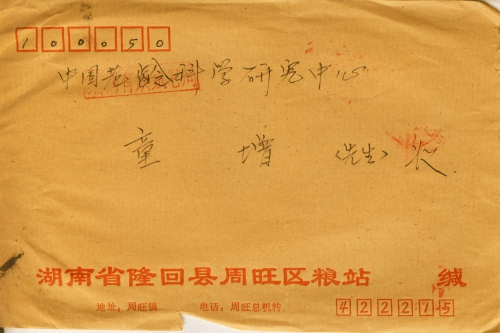 100050
中国老龄科学研究中心
童增（先生）收
湖南省隆回县周旺区粮站 缄
地址：周旺镇 电话：周旺总机转 422215